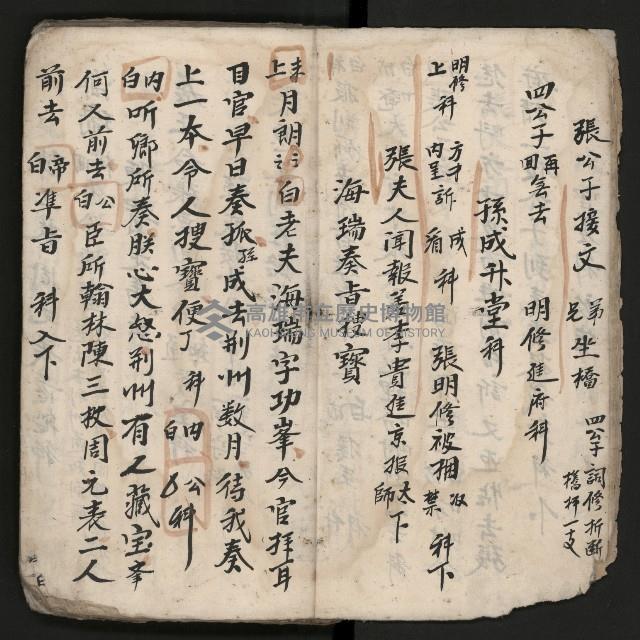 張公子接文 弟兄坐橋 四公子詞修折斷橋抨一支
四公子再回気去 明修進府科
孫成升堂科
明修科上 方才訴内里看 成科 張明修被捆收禁 科下
張夫人聞報 差李貴進京报太師 下
海瑞奏旨搜寶
末上 月朗 白 老夫海瑞字功峯今官拜耳
目官早日奏孫成去荆州数月待我奏
上一本令人搜寶便了 科 内白 公科
内白 听卿所奏朕心大怒荆州有人藏宝奉
何又前去 公白 臣所翰林陳三枚周元表二人
前去 帝白 準旨 科入下
高雄市立歷史博物館
KAOHSIUNG MUSEUM OF HISTORY